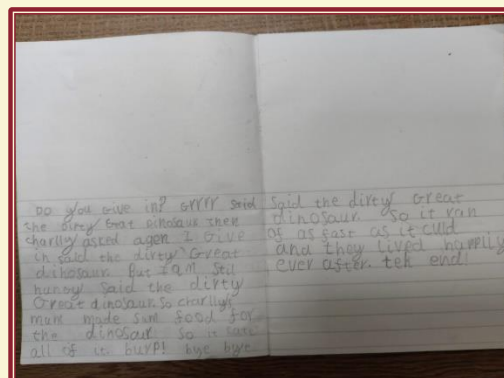 Do you give in? Grrrr said
the dirty Great Dinosaur then
charlly asked agen I Give
in said the dirty Great
dinosaur. But I am stil
hungy said the dirty
Great dinosaur. So charllyi
mum made sum food for
the dinosaur. So it
all of it. burp! bye bye.
said the dirty Great
dinosaur. So it ran
of as fast as it culd
and they lived happily
ever after. teh end!